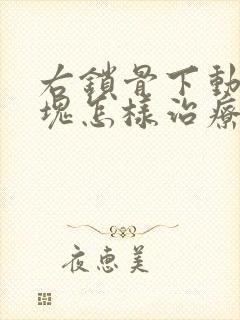 右鎖骨下動
塊怎樣治療
夜惠美